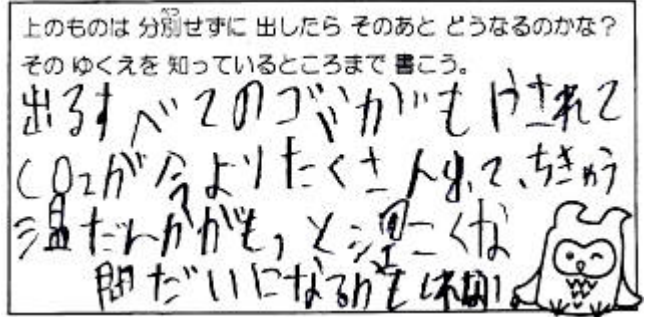 上のものは 分別せずに 出したら そのあと どうなるのかな?
その ゆくえを 知っているところまで 書こう。
出るすべてのゴミがもやされて
CO2が今よりたくさん出て、ちきゅう
温だんかがもっと深こくな
問だいになるかもしれない